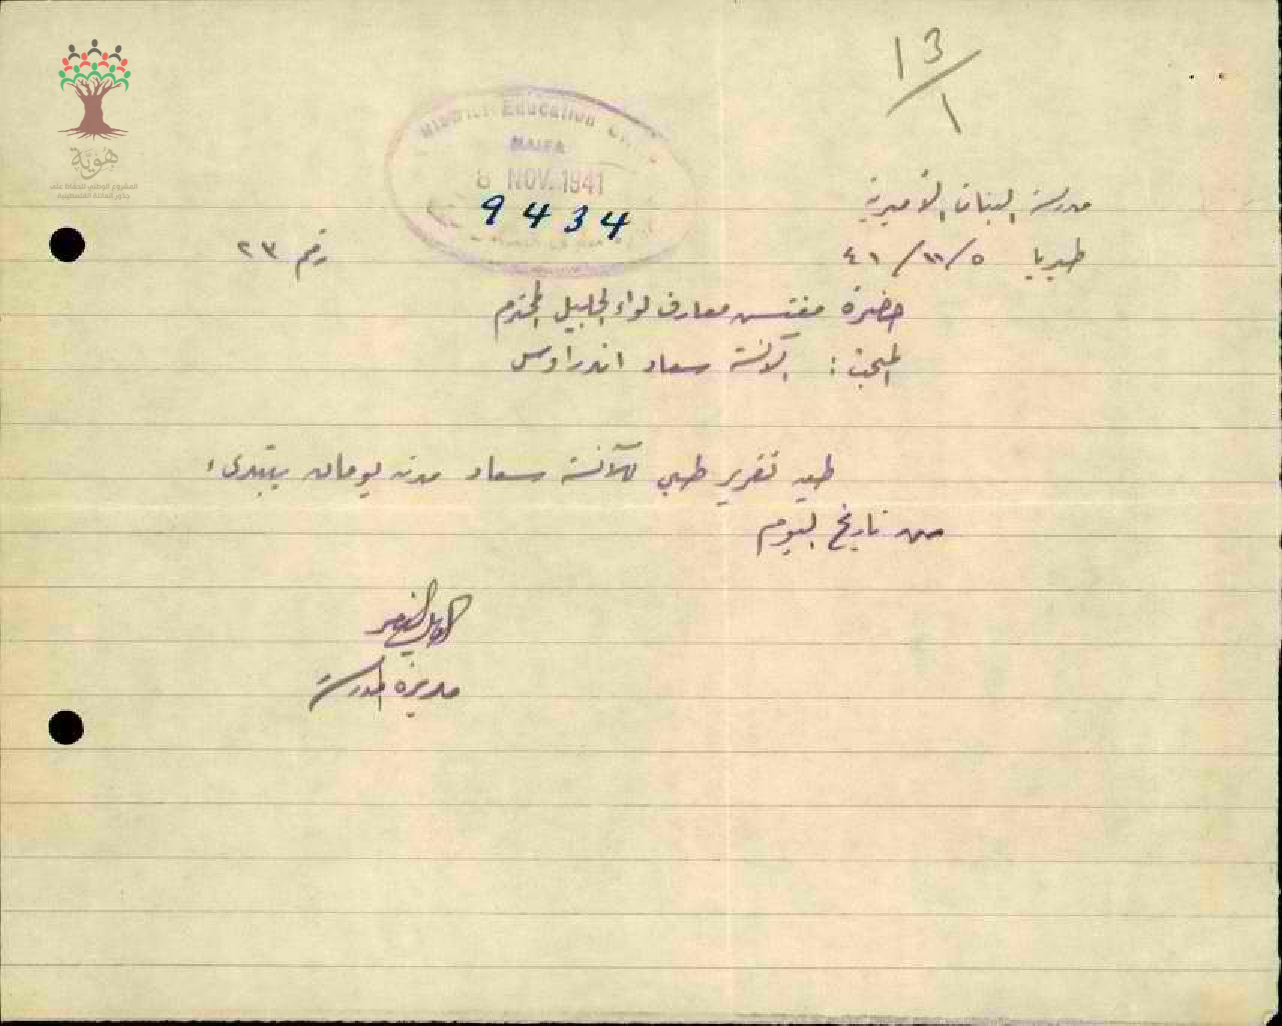 13/1
هوية
المشروع الوطني للحفاظ على
جذور العائلة الفلسطينية
District Education
HAIFA
8 NOV. 1941
9434
مدرسة البنات الأميرية
طبريا ٥/١١/٤١
رقم ٢٣
حضرة مفتش معارف لواء الجليل المحترم
المبحث: الآنسة سعاد اندراوس
طيه تقرير طبي للآنسة سعاد مدته يومان يبتدىء
من تاريخ اليوم
مديرة المدرسة